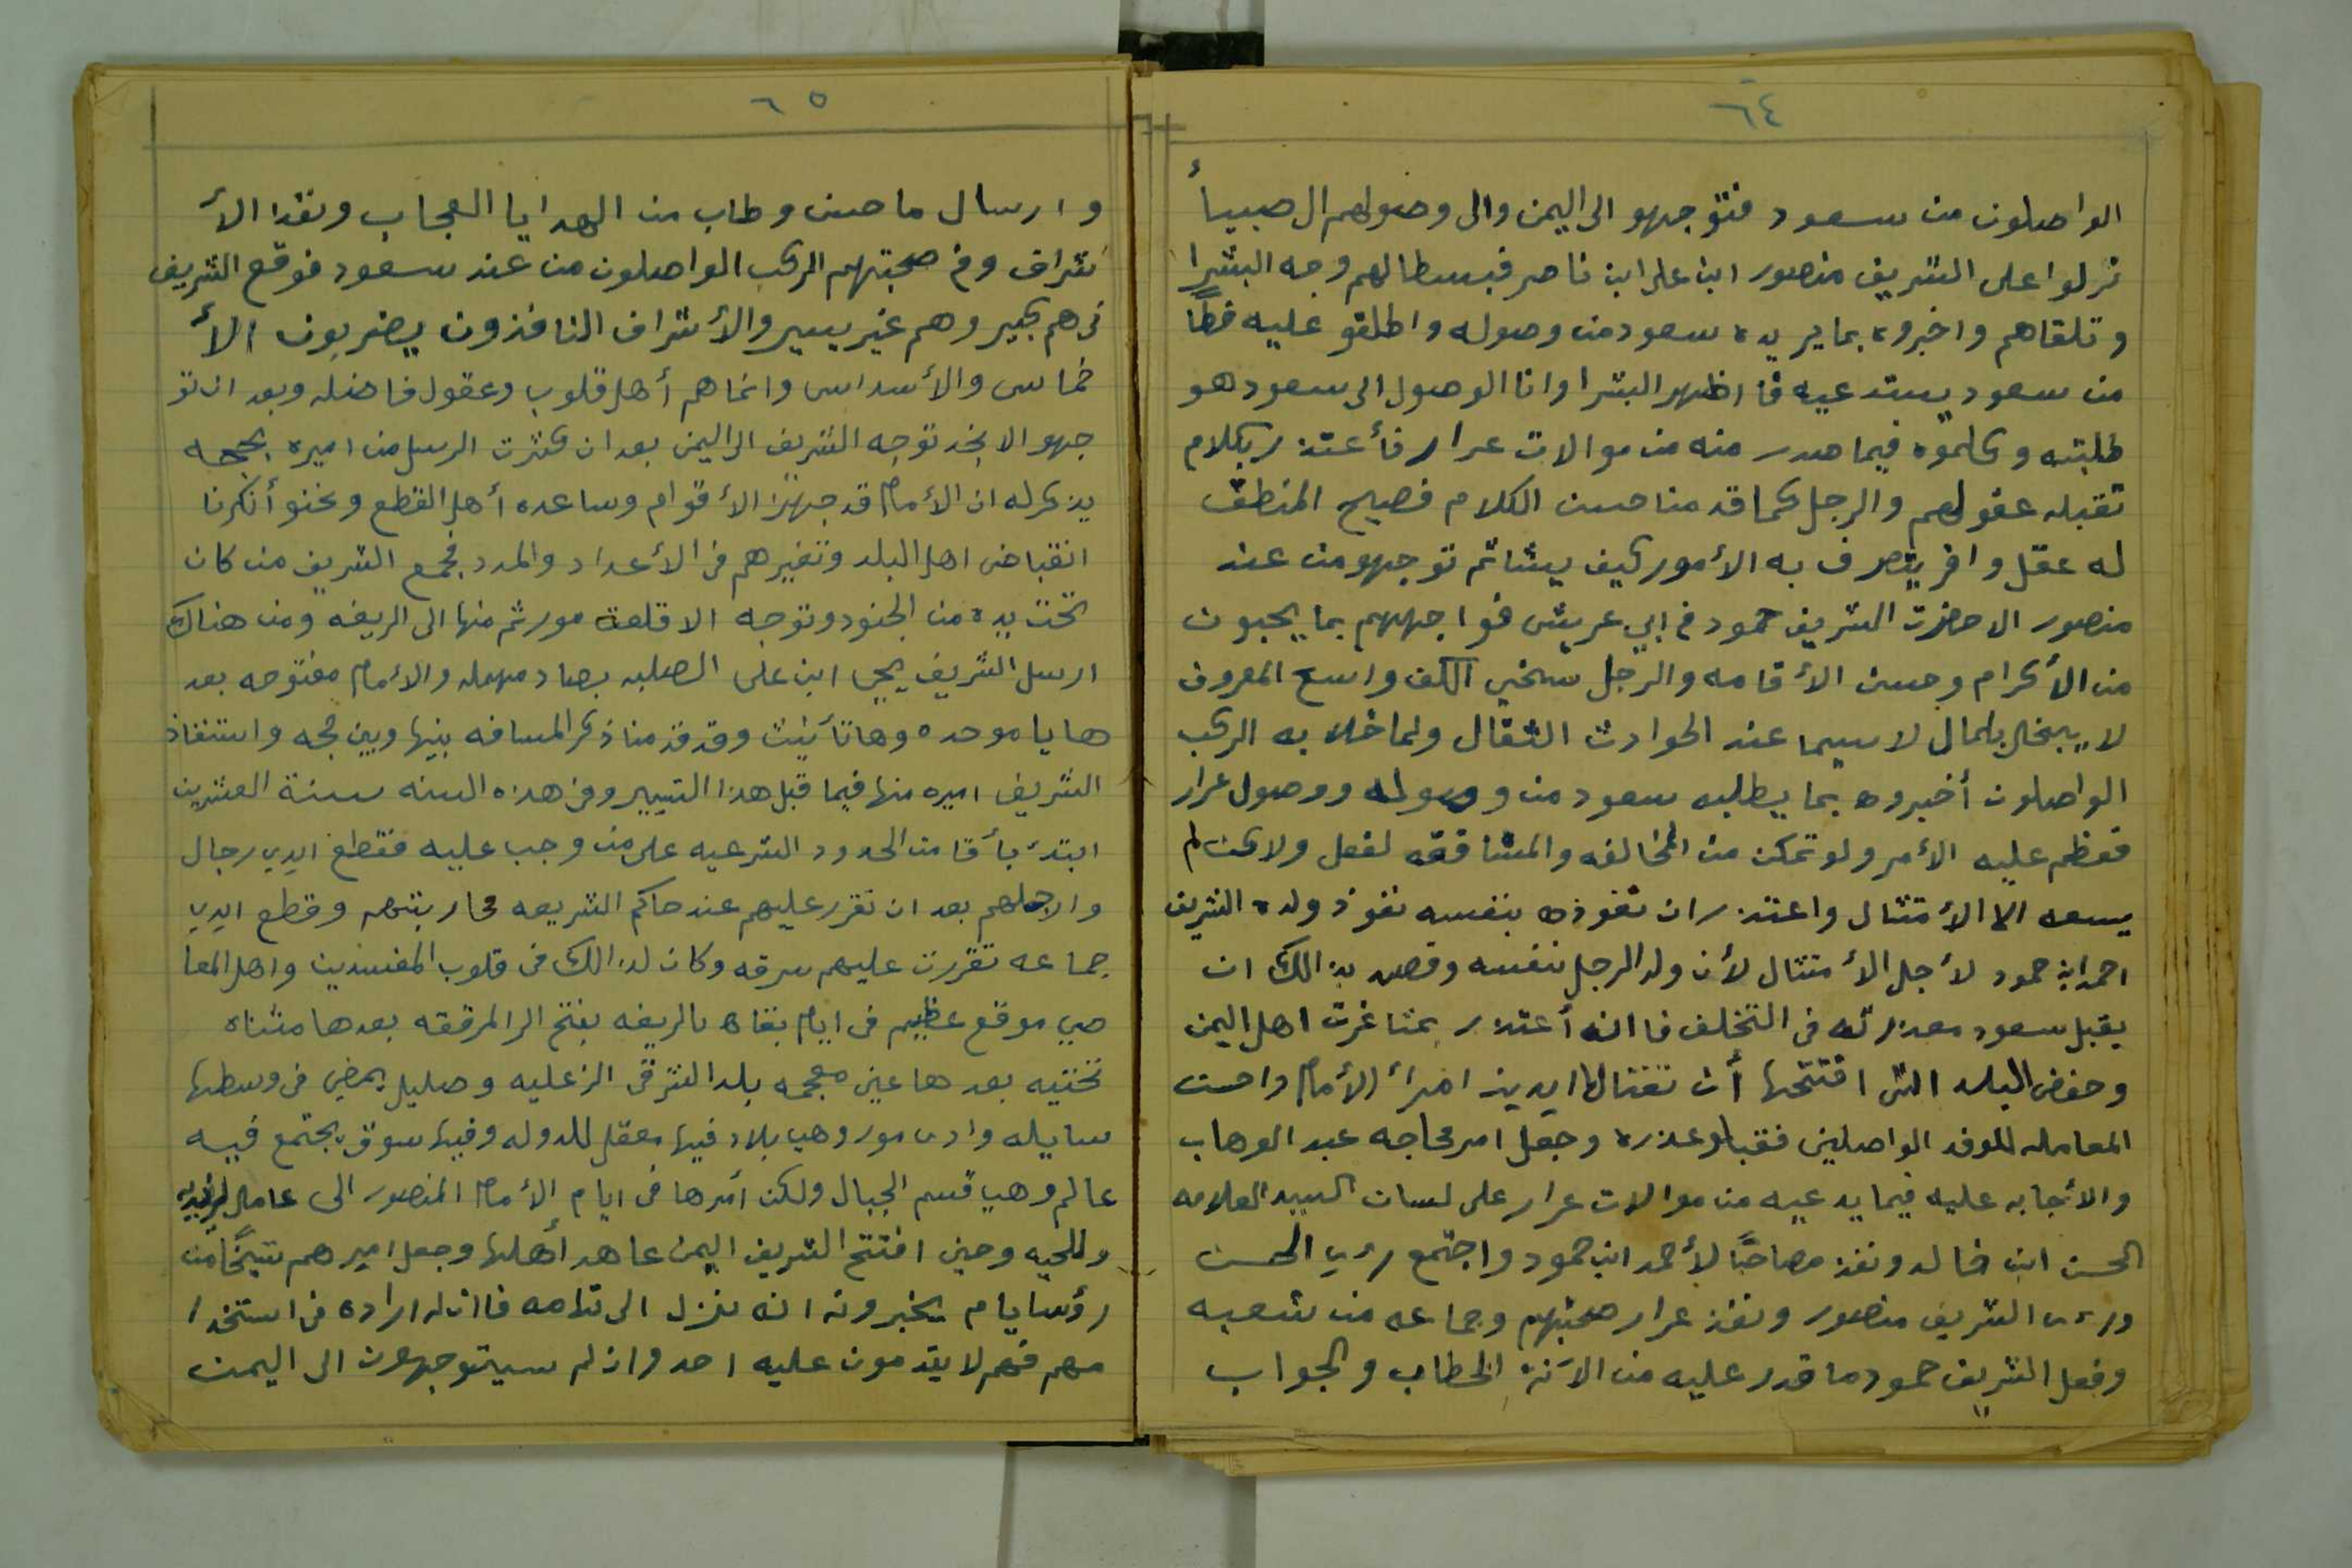 ٦٤
الواصلون من سعود فتوجهو الى اليمن والى وصولهم ال صبيأ
نزلوا على الشريف منصور ابن على ابن ناصر فبسطا لهم وجه البشرا
وتلقاهم واخبروه بما يريده سعود من وصوله واطلقو عليه خطاً
من سعود يستدعيه فا اظهر البشرا وانا الوصول الى سعود هو
طلبته وكلموه فيما صدر منه من موالات عرار فأعتذر بكلام
تقبله عقولهم والرجل كما قدمنا حسن الكلام فصيح المنطق
له عقل وافر يتصرف به الأمور كيف يشا ثم توجهو من عند
منصور الا حضرت الشريف حمود في ابي عريش فواجههم بما يحبون
من الأكرام وحسن الأقامه والرجل سخي الكف واسع المعروف
لا يبخل بلمال لاسيما عند الحوادث الثقال ولما خلا به الركب
الواصلون أخبروه بما يطلبه سعود من ووصوله ووصول عرار
فعظم عليه الأمر ولو تمكن من المخالفه والمشاققه لفعل ولاكن لم
يسعه الا الأمتثال واعتذر ان نفوذه بنفسه نفوذ ولده الشريف
احمد ابن حمود لأجل الأمتثال لأن ولد الرجل بنفسه وقصد بذالك ان
يقبل سعود معذرته في التخلف فا انه أعتذر بمثاغرت اهل اليمن
وحفض البلد التى افتتحها أن تغتالها ايدين امرأ الأمام واحسن
المعامله للوفد الواصلين فقبلو عذره وجعل امر محاجه عبد الوهاب
والأجابه عليه فيما يدعيه من موالات عرار على لسان السيد العلامه
الحسن ابن خالد ونفذ مصاحباً لأحمد ابن حمود واجتمع رءي الحسن
ورءى الشريف منصور ونفذ عرار صحبتهم وجماعه من شعبه
وفعل الشريف حمود ما قدر عليه من الآنة الخطاب والجواب
٦٥
وارسال ما حسن وطاب من الهدايا العجاب ونفذ الأ
شراف وفي صحبتهم الركب الواصلون من عند سعود فوقع الشريف
فى هم كبير وهم غير يسير والأشراف النافذون يضربون الأ
خماس والأسداس وانما هم أهل قلوب وعقول فاضله وبعد ان تو
جهو الا نجد توجه الشريف الى اليمن بعد ان كثرت الرسل من اميره بحجه
يذكر له ان الأمام قد جهز الأقوام وساعده أهل القطع ونحنو أنكرنا
انقباض اهل البلد وتغيرهم فى الأعداد والمدد فجمع الشريف من كان
تحت يده من الجنود وتوجه الا قلعة مور ثم منها الى الريغه ومن هناك
ارسل الشريف يحيى ابن على الصلبه بصاد مهمله والأمام مفتوحه بعد
ها يا موحده وها تأنيث وقد قدمنا ذكر المسافه بينها وبين حجه واستنفاذ
الشريف اميره منها فيما قبل هذا التيير وفى هذه السنه سنة العشرين
ابتدئ بأقامت الحدود الشرعيه على من وجب عليه فقطع ايدي رجال
وارجلهم بعد ان تقرر عليهم عند حاكم الشريعه محاربتهم وقطع ايدي
جماعه تقررت عليهم سرقه وكان لذالك فى قلوب المفسدين واهل المعا
صي موقع عظيم فى ايام بقاه بالريغه بفتح الرا المرققه بعدها مثناه
تحتيه بعدها عين معجمه بلد الشرقى الزعليه وصليل يمضي فى وسطها
سايله وادى مور وهي بلاد فيها معقل للدوله وفيها سوق يجتمع فيه
عالم وهي قسم الجبال ولكن أمرها فى ايام الأمام المنصور الى عامل
وللحيه وحين افتتح الشريف اليمن عاهد أهلها وجعل اميرهم شيخاً من
رؤسا يام يخبرونه انه نزل الى تهامه فا ان له اراده فى استخدا
مهم فهم لا يقدمون عليه احد وان لم سيتوجهون الى اليمن